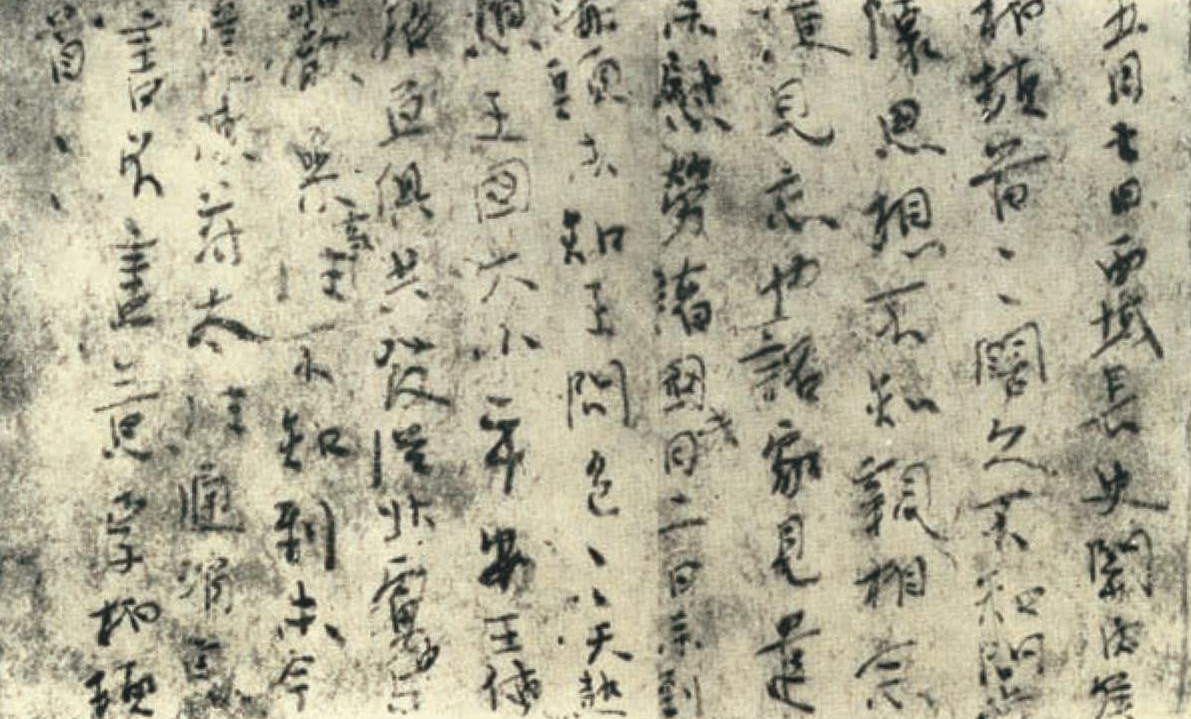 五月七日西域長史關内侯
柏頓首、、闊久不知問常
懷思想不知親相念
便見忘也詔家見遣
来慰勞諸國此月二日来到
海頭未知王問邑、、天熱
想王國大小平安王使
招亘俱共發從北虜中
與嚴參事往不知到未今
遣使苻太往通消息
書不盡意李柏頓
首、、